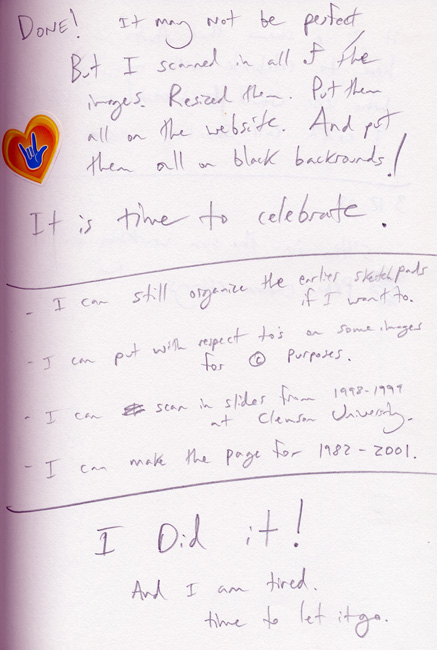 DONE! It may not be perfect
But I scanned in all of the
images. Resized them. Put them
all on the website. And put
them all on black backrounds!
It is time to celebrate.
- I can still organize the earlier sketchpads
if I want to.
- I can put with respect to's on some images
for © purposes.
- I can scan in slides from 1998-1999
at Clemson University.
- I can make the page for 1982-2001.
I Did it!
And I am tired.
time to let it go.